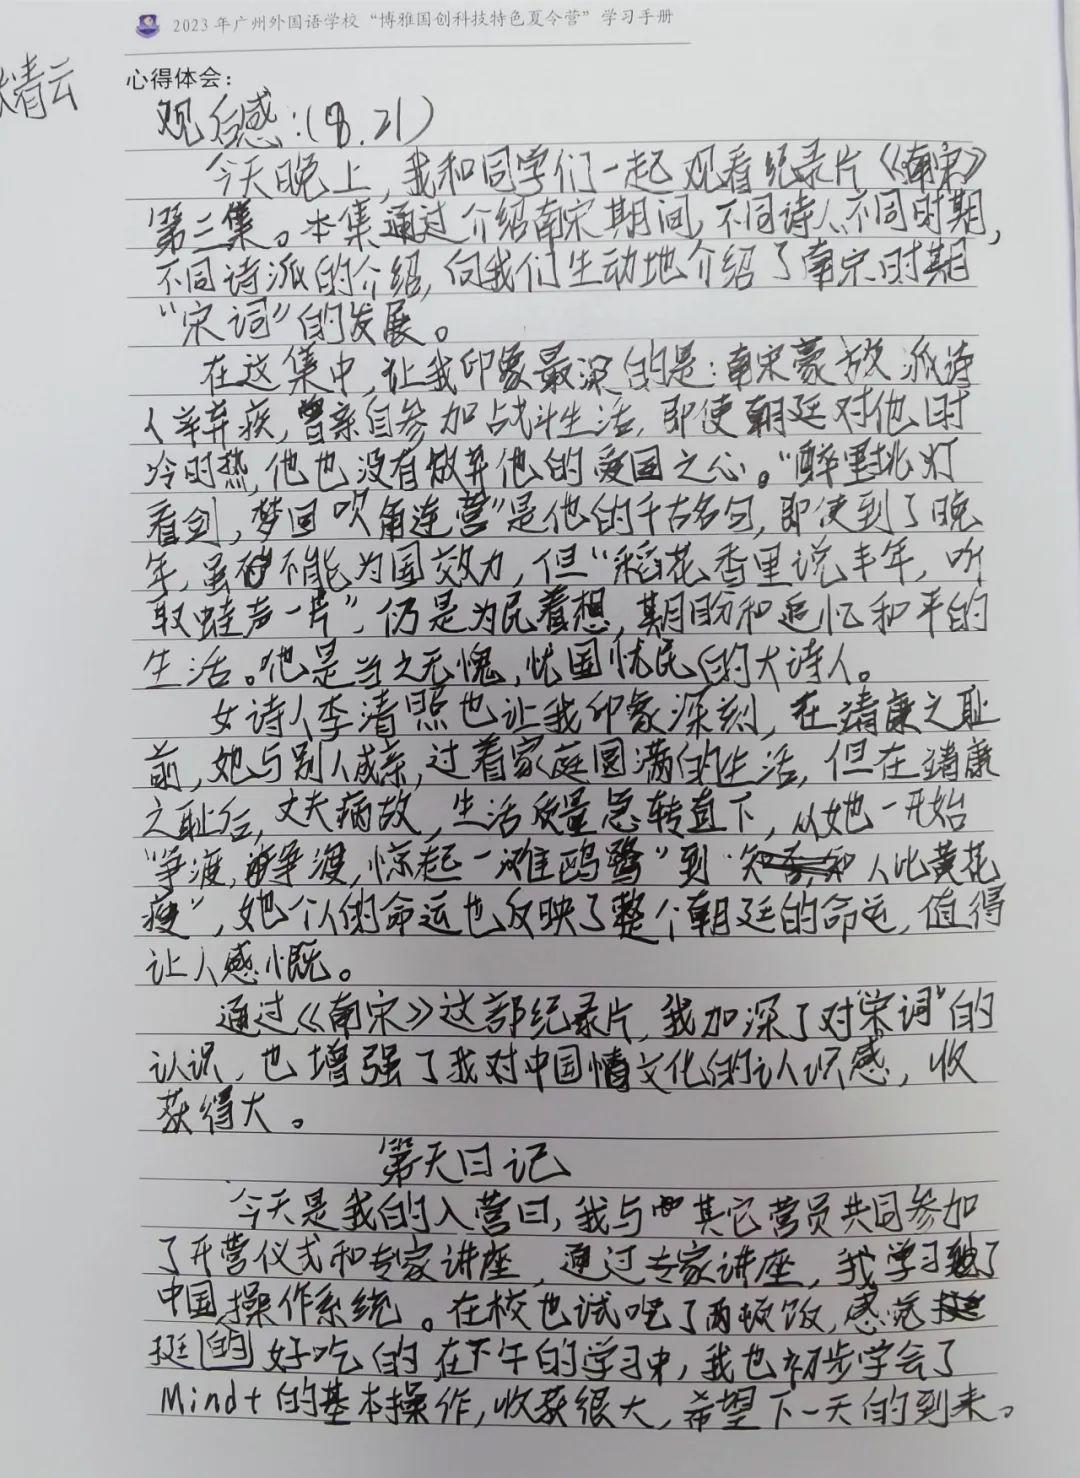 2023年广州外国语学校“博雅国创科技特色夏令营”学习手册
青云
心得体会：
观后感：(8.21)
今天晚上，我和同学们一起观看纪录片《南宋》
第二集。本集通过介绍南宋期间，不同诗人不同时期，
不同诗派的介绍，向我们生动地介绍了南宋时期
“宋词”的发展。
在这集中，让我印象最深的是：南宋豪放派诗
人辛弃疾，曾亲自参加战斗生活，即使朝廷对他时
冷时热，他也没有放弃他的爱国之心。“醉里挑灯
看剑，梦回吹角连营”是他的千古名句，即使到了晚
年，虽不能为国效力，但“稻花香里说丰年，听
取蛙声一片”，仍是为民着想，期盼和追忆和平的
生活。他是当之无愧，忧国忧民的大诗人。
女诗人李清照也让我印象深刻，在靖康之耻
前，她与别人成亲，过着家庭圆满的生活，但在靖康
之耻后，丈夫病故，生活质量急转直下，从她一开始
“争渡，争渡，惊起一滩鸥鹭”到“人比黄花
瘦”，她个人的命运也反映了整个朝廷的命运，值得
让人感慨。
通过《南宋》这部纪录片，我加深了对“宋词”的
认识，也增强了我对中国情文化的认识感，收
获得大。
第天日记
今天是我的入营日，我与其它营员共同参加
了开营仪式和专家讲座，通过专家讲座，我学习了
中国操作系统。在校也试吃了两顿饭，感觉
挺的好吃的在下午的学习中，我也初步学会了
Mind+的基本操作，收获很大，希望下一天的到来。